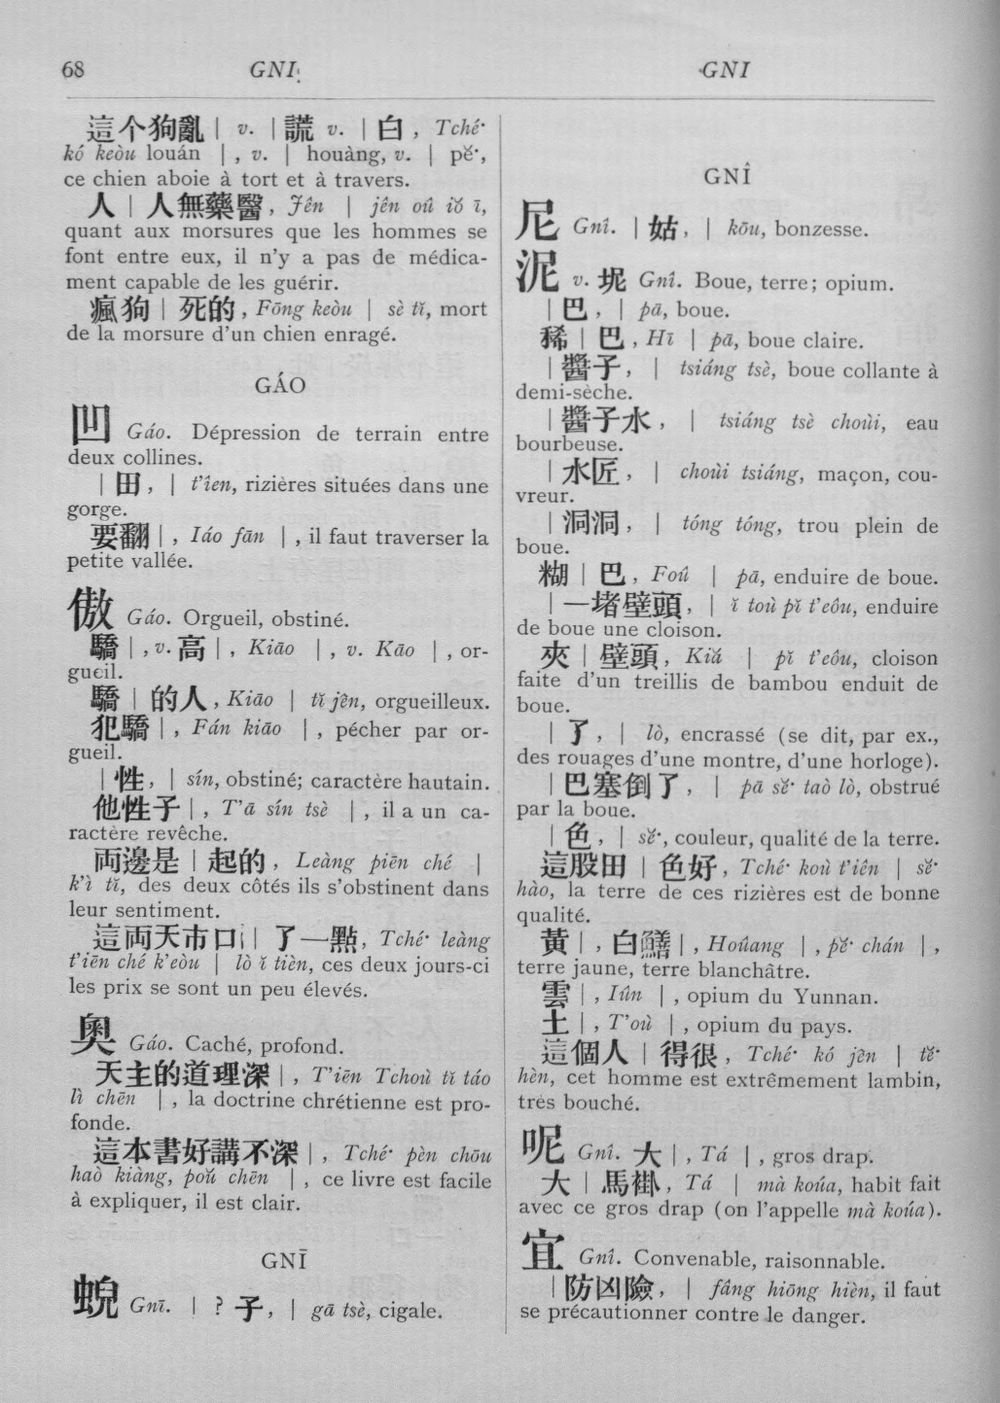 68
GNI
GNI
這个狗亂 | v. | 謊 v. | 白 , Tché·
kó keòu louán | , v. | houàng, v. | pĕ·,
ce chien aboie à tort et à travers.
人 | 人無藥醫, Jên | jên oû iŏ ī,
quant aux morsures que les hommes se
font entre eux, il n'y a pas de médica-
ment capable de les guérir.
瘋狗 | 死的 , Fōng keòu | sè tĭ, mort
de la morsure d'un chien enragé.
GÁO
凹 Gáo. Dépression de terrain entre
deux collines.
| 田, | t'iên, rizières situées dans une
gorge.
要翻 | , Iáo fān | , il faut traverser la
petite vallée.
傲 Gáo. Orgueil, obstiné.
驕 | , v. 高 | , Kiāo | , v. Kāo | , or-
gueil.
驕 | 的人 , Kiāo | tĭ jên, orgueilleux.
犯驕 | , Fán kiāo | , pécher par or-
gueil.
| 性, | sín, obstiné; caractère hautain.
他性子 | , T'ā sín tsè | , il a un ca-
ractère revêche.
両邊是 | 起的 , Leàng piēn ché |
k'ì tĭ, des deux côtés ils s'obstinent dans
leur sentiment.
這両天市口 | | 了一點, Tché· leàng
t'iēn ché k'eòu | lò ĭ tièn, ces deux jours-ci
les prix se sont un peu élevés.
奥 Gáo. Caché, profond.
天主的道理深 | , T'iēn Tchoù tĭ táo
lì chēn | , la doctrine chrétienne est pro-
fonde.
這本書好講不深 | , Tché· pèn chōu
haò kiàng, poŭ chēn | , ce livre est facile
à expliquer, il est clair.
GNĪ
蜺 Gnī. | ? 子, | gā tsè, cigale.
GNÎ
尼 Gnî. | 姑, | kōu, bonzesse.
泥 v. 坭 Gnî. Boue, terre; opium.
| 巴 , | pā, boue.
稀 | 巴 , Hī | pā, boue claire.
| 醬子, | tsiáng tsè, boue collante à
demi-sèche.
| 醬子水 , | tsiáng tsè choùi, eau
bourbeuse.
| 水匠 , | choùi tsiáng, maçon, cou-
vreur.
| 洞洞 , | tóng tóng, trou plein de
boue.
糊 | 巴 , Foû | pā, enduire de boue.
| 一堵壁頭, | ĭ toù pĭ t'eôu, enduire
de boue une cloison.
夾 | 壁頭, Kiă | pĭ t'eôu, cloison
faite d'un treillis de bambou enduit de
boue.
| 了 , | lò, encrassé (se dit, par ex.,
des rouages d'une montre, d'une horloge).
| 巴塞倒了 , | pā sĕ· taò lò, obstrué
par la boue.
| 色, | sĕ·, couleur, qualité de la terre.
這股田 | 色好, Tché· koù t'iên | sĕ·
hào, la terre de ces rizières est de bonne
qualité.
黃 | , 白鱔 | , Hoûang | , pĕ· chán | ,
terre jaune, terre blanchâtre.
雲 | , Iûn | , opium du Yunnan.
土 | , T'où | , opium du pays.
這個人 | 得很 , Tché· kó jên | tĕ·
hèn, cet homme est extrêmement lambin,
très bouché.
呢 Gnî. 大 | , Tá | , gros drap.
大 | 馬褂 , Tá | mà koúa, habit fait
avec ce gros drap (on l'appelle mà koúa).
宜 Gnî. Convenable, raisonnable.
| 防凶險, | fâng hiōng hièn, il faut
se précautionner contre le danger.